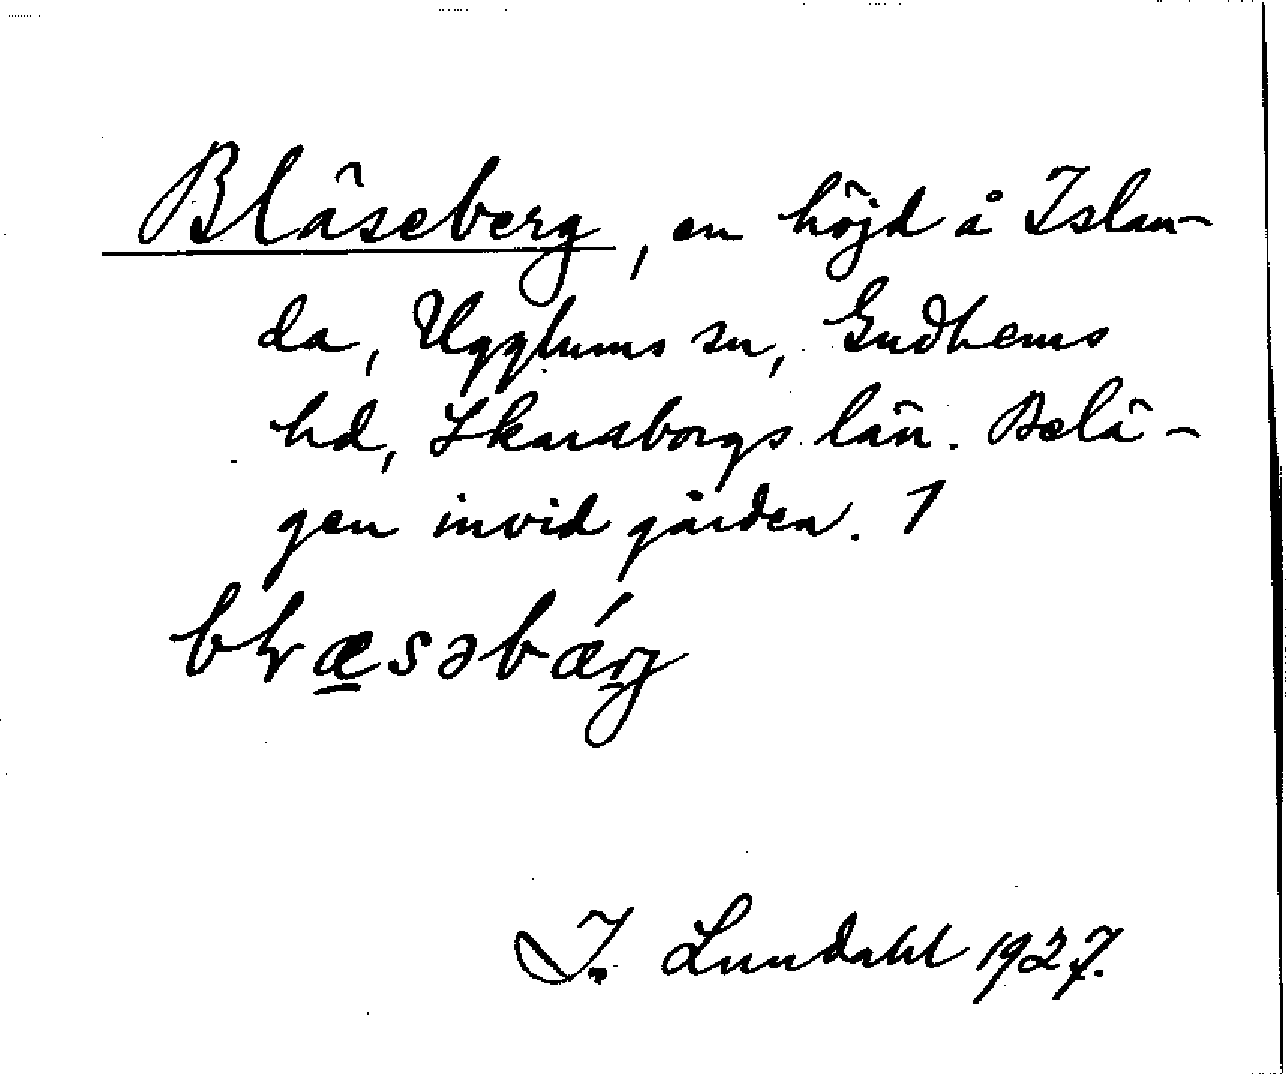 Bläseberg, en höjd å Islan-
da, Ugglums sn, Gudhems
hd, Skaraborgs län. Belä-
gen invid gården. 1
bɫæsəbǽrg
I. Lundahl 1927.